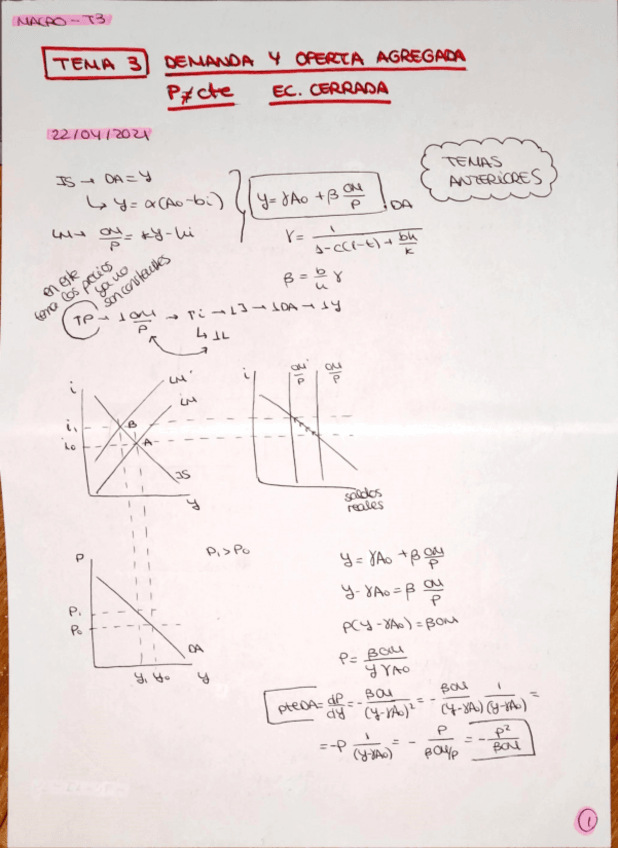 MACRO - T3
TEMA 3 DEMANDA Y OFERTA AGREGADA
P≠cte EC. CERRADA
22/04/2021
TEMAS ANTERIORES
IS → DA = Y
↳ Y = α(A0 - bi)
LM → OM/P = kY - hi
Y = γA0 + β OM/P DA
γ = 1/(1-c(1-t) + bh/k)
β = b/h γ
en este tema los precios ya no son constantes
↑P → ↓OM/P → ↑i → ↓I → ↓DA → ↓Y
↳ ↓L
i
LM'
LM
i1
i0
B
A
IS
Y
i
OM'/P
OM/P
saldos reales
P
P1 > P0
P1
P0
DA
Y1 Y0 Y
Y = γA0 + β OM/P
Y - γA0 = β OM/P
P(Y - γA0) = βOM
P = βOM/(Y γA0)
pteDA = dP/dY = - βOM/(Y-γA0)² = - βOM/(Y-γA0) 1/(Y-γA0) =
= -P 1/(Y-γA0) = - P/(βOM/P) = - P²/βOM
1